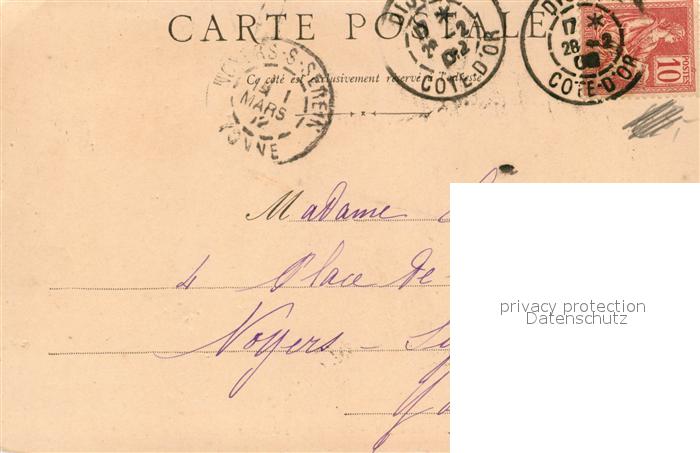 CARTE POSTALE
Ce côté est exclusivement réservé à l'adresse
DIJ
17
28 -2
02
COTE-D'OR
DIJ
17
28 -2
0
COTE-D'OR
POSTES
10
NOYERS-S-SEREIN
1
MARS
YONNE
Madame
4 Place de
Noyers -
privacy protection
Datenschutz